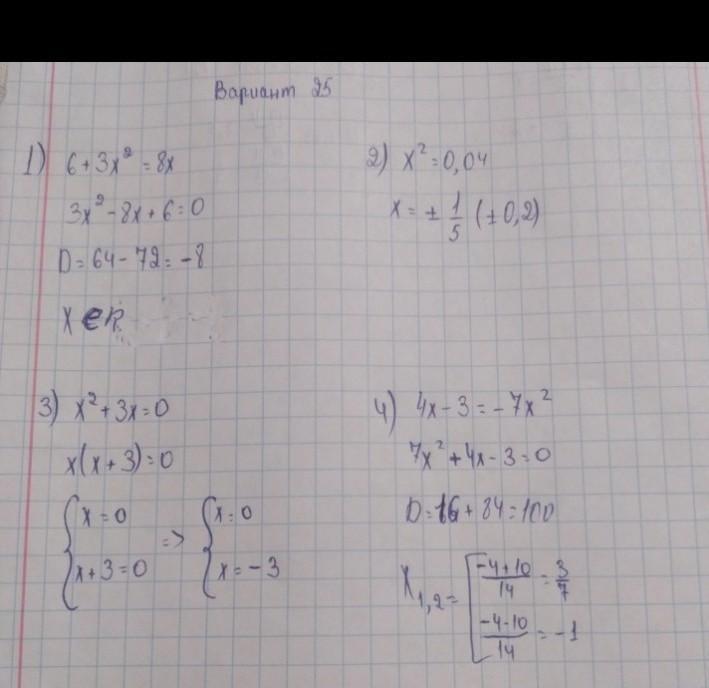 Вариант 25
1) 6+3x²=8x
3x²-8x+6=0
D=64-72=-8
x∈R
2) x²=0,04
x=±1/5 (±0,2)
3) x²+3x=0
x(x+3)=0
{x=0 => {x=0
{x+3=0 {x=-3
4) 4x-3=-7x²
7x²+4x-3=0
D=16+84=100
x₁,₂= [(-4+10)/14=3/7
[(-4-10)/14=-1